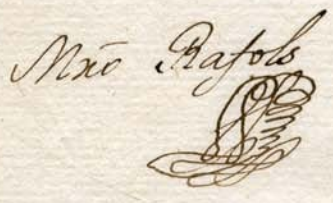 Mno Rafols